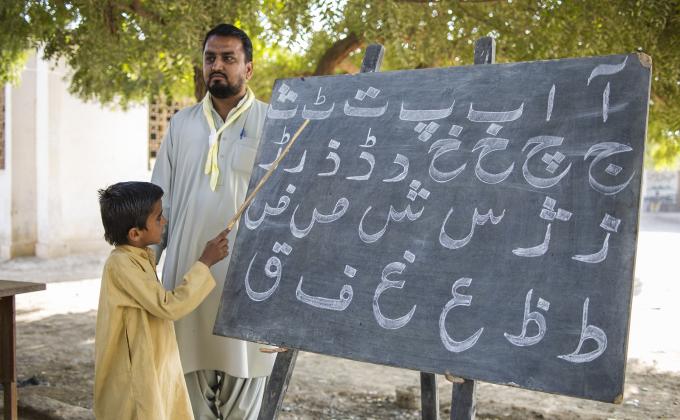 آ ا ب پ ت ٹ ث
ج چ خ خ د ڈ ذ ر ڑ
ز ژ س ش ص ض
ط ظ ع غ ف ق